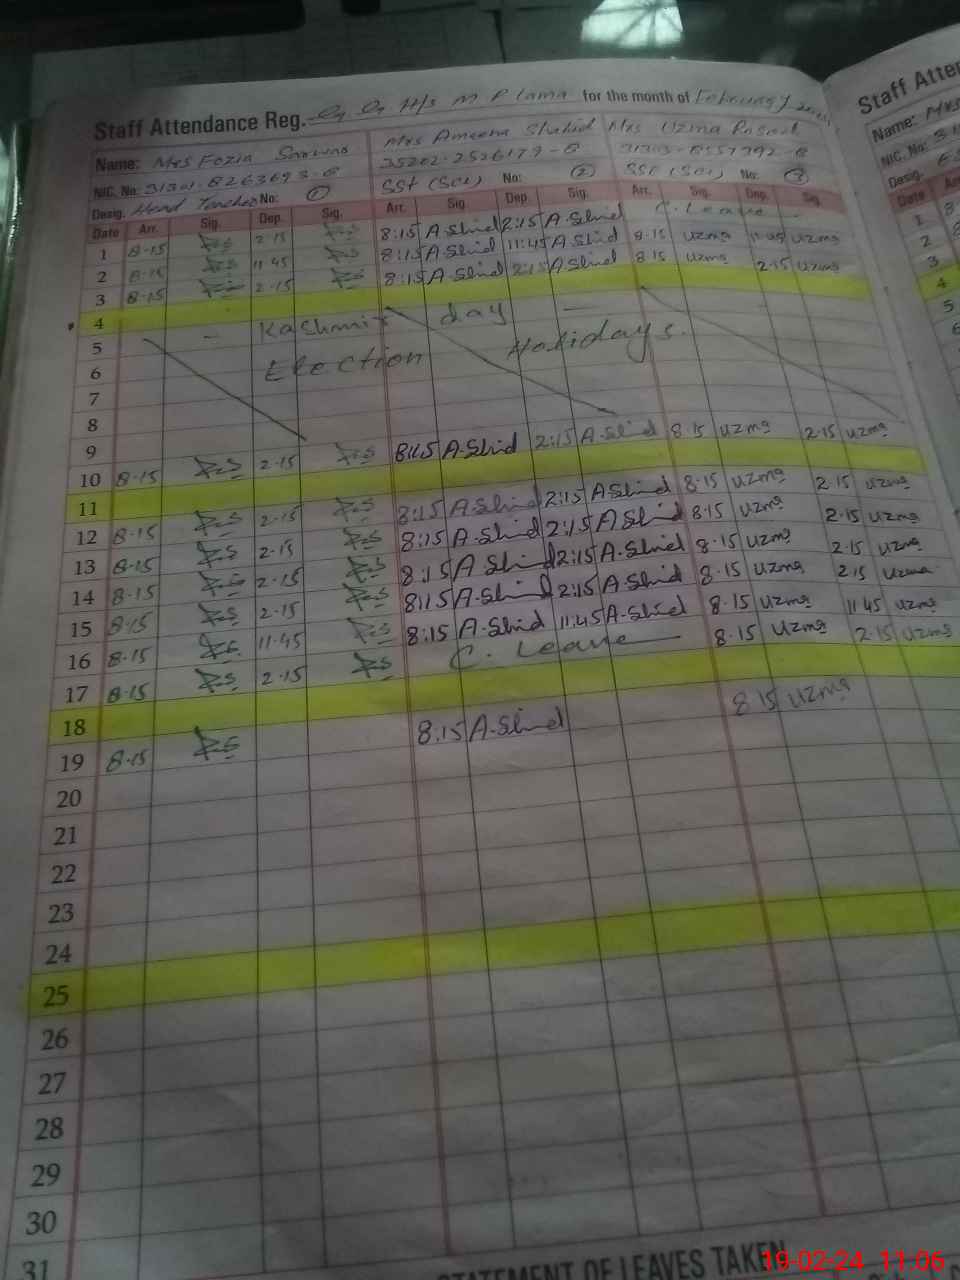 Staff Attendance Reg. H/s M P Lama for the month of February
Staff Atten
Name: Mrs Fozia Sarwar Mrs Ameena Shahid Mrs Uzma Rasool
Name: Mrs
NIC. No: 31301-8263693-8 35202-2526179-8 31303-8557792-8
NIC. No: 31
Desig. Head Teacher No: 1 SST (Sci) No: 2 SST (Sci) No: 3
Desig.
Date Arr. Sig. Dep. Sig. Arr. Sig. Dep. Sig. Arr. Sig. Dep. Sig.
Date
1 8-15 2-15 8:15 A-Shhid 2:15 A-Shhid C. Leave
2 8-15 11-45 8:15 A-Shhid 11:45 A Shhid 8-15 Uzma 11-45 Uzma
3 8-15 2-15 8:15 A-Shhid 2:15 A-Shhid 8-15 Uzma 2-15 Uzma
4
5 - Kashmir day -
6 Election Holidays.
7
8
9
10 8-15 2-15 8:15 A-Shhid 2:15 A-Shhid 8-15 Uzma 2-15 Uzma
11
12 8-15 2-15 8:15 A-Shhid 2:15 A-Shhid 8-15 Uzma 2-15 Uzma
13 8-15 2-15 8:15 A-Shhid 2:15 A-Shhid 8-15 Uzma 2-15 Uzma
14 8-15 2-15 8:15 A-Shhid 2:15 A-Shhid 8-15 Uzma 2-15 Uzma
15 8-15 2-15 8:15 A-Shhid 2:15 A-Shhid 8-15 Uzma 2-15 Uzma
16 8-15 11-45 8:15 A-Shhid 11:45 A-Shhid 8-15 Uzma 11-45 Uzma
17 8-15 2-15 C. Leave 8-15 Uzma 2-15 Uzma
18
19 8-15 8:15 A-Shhid 8-15 Uzma
20
21
22
23
24
25
26
27
28
29
30
31
STATEMENT OF LEAVES TAKEN
19-02-24 11:06